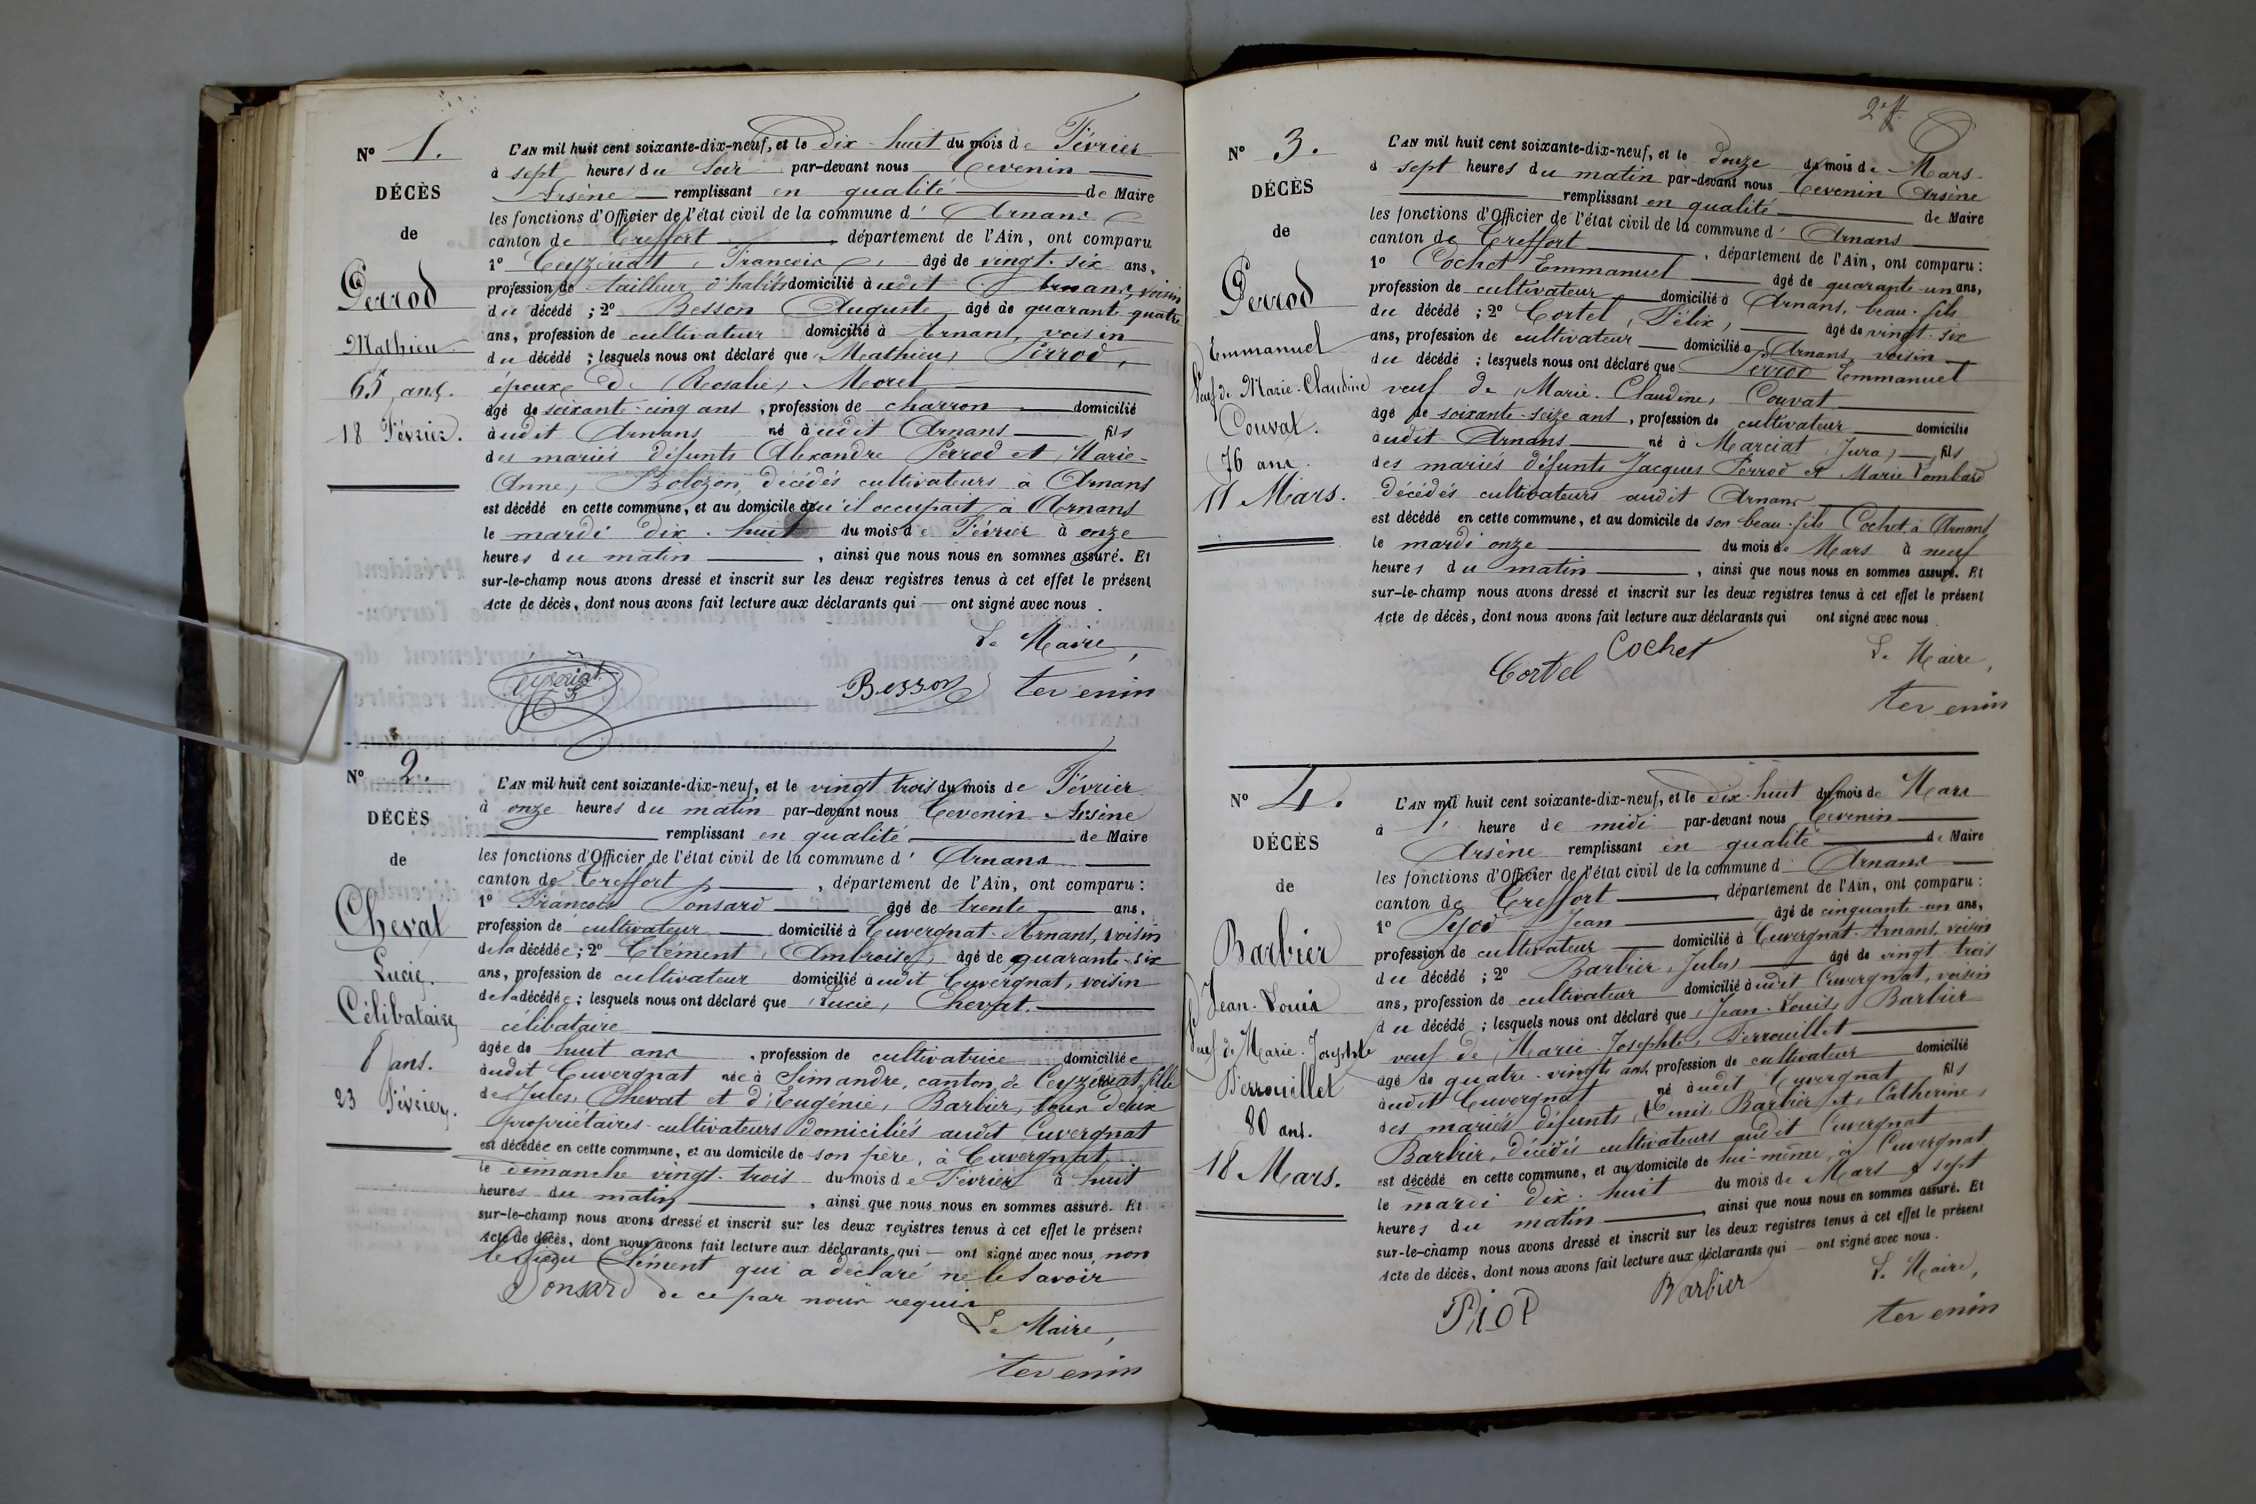 N° 1.
DÉCÈS
de
Perrod
Mathieu
65 ans.
18 Février.
L'AN mil huit cent soixante-dix-neuf, et le dix-huit du mois de Février
à sept heures du soir par-devant nous Tevenin
Arsène remplissant en qualité de Maire
les fonctions d'Officier de l'état civil de la commune d' Arnans
canton de Treffort, département de l'Ain, ont comparu
1° Ceyzériat, François, âgé de vingt-six ans,
profession de tailleur d'habits domicilié à udit Arnans, voisin
du décédé ; 2° Besson Auguste, âgé de quarante-quatre
ans, profession de cultivateur domicilié à Arnans, voisin
du décédé ; lesquels nous ont déclaré que Mathieu, Perrod,
époux de Rosalie, Morel
âgé de soixante-cinq ans, profession de charron domicilié
audit Arnans né à udit Arnans fils
des mariés défunts Alexandre Perrod et Marie-
Anne, Bolozon, décédés cultivateurs à Arnans
est décédé en cette commune, et au domicile qu'il occupait à Arnans
le mardi dix-huit du mois de Février à onze
heures du matin, ainsi que nous nous en sommes assuré. Et
sur-le-champ nous avons dressé et inscrit sur les deux registres tenus à cet effet le présent
Acte de décès, dont nous avons fait lecture aux déclarants qui — ont signé avec nous.
Le Maire,
Ceyzériat Besson tevenin
N° 2.
DÉCÈS
de
Chevat
Lucie.
Célibataire
8 ans.
23 Février.
L'AN mil huit cent soixante-dix-neuf, et le vingt-trois du mois de Février
à onze heures du matin par-devant nous Tevenin Arsène
remplissant en qualité de Maire
les fonctions d'Officier de l'état civil de la commune d' Arnans
canton de Treffort, département de l'Ain, ont comparu :
1° François Ponsard âgé de trente ans,
profession de cultivateur domicilié à Cuvergnat-Arnans, voisin
de la décédée ; 2° Clément, Ambroise, âgé de quarante-six
ans, profession de cultivateur domicilié audit Cuvergnat, voisin
de la décédée ; lesquels nous ont déclaré que Lucie, Chevat.
célibataire
âgée de huit ans, profession de cultivatrice domiciliée
audit Cuvergnat née à Simandre, canton de Ceyzériat, fille
de Jules, Chevat et d'Eugénie, Barbier, tous deux
propriétaires-cultivateurs domiciliés audit Cuvergnat
est décédée en cette commune, et au domicile de son père, à Cuvergnat
le dimanche vingt-trois du mois de Février à huit
heures du matin, ainsi que nous nous en sommes assuré. Et
sur-le-champ nous avons dressé et inscrit sur les deux registres tenus à cet effet le présent
Acte de décès, dont nous avons fait lecture aux déclarants qui — ont signé avec nous, non
le sieur Clément qui a déclaré ne le savoir
Ponsard de ce par nous requis
Le Maire,
tevenin
2e f.
N° 3.
DÉCÈS
de
Perrod
Emmanuel
Veuf de Marie-Claudine
Couvat.
76 ans.
11 Mars.
L'AN mil huit cent soixante-dix-neuf, et le douze du mois de Mars
à sept heures du matin par-devant nous Tevenin Arsène
remplissant en qualité de Maire
les fonctions d'Officier de l'état civil de la commune d' Arnans
canton de Treffort, département de l'Ain, ont comparu :
1° Cochet Emmanuel âgé de quarante-un ans,
profession de cultivateur domicilié à Arnans, beau-fils
du décédé ; 2° Cortel, Félix, âgé de vingt-six
ans, profession de cultivateur domicilié à Arnans, voisin
du décédé ; lesquels nous ont déclaré que Perrod Emmanuel
veuf de Marie-Claudine, Couvat
âgé de soixante-seize ans, profession de cultivateur domicilié
audit Arnans né à Marciat (Jura) fils
des mariés défunts Jacques Perrod et Marie Lombard
décédés cultivateurs audit Arnans
est décédé en cette commune, et au domicile de son beau-fils Cochet à Arnans
le mardi onze du mois de Mars à neuf
heures du matin, ainsi que nous nous en sommes assuré. Et
sur-le-champ nous avons dressé et inscrit sur les deux registres tenus à cet effet le présent
Acte de décès, dont nous avons fait lecture aux déclarants qui ont signé avec nous.
Cortel Cochet Le Maire,
tevenin
N° 4.
DÉCÈS
de
Barbier
Jean-Louis
Veuf de Marie-Josephte
Perrouillet
80 ans.
18 Mars.
L'AN mil huit cent soixante-dix-neuf, et le dix-huit du mois de Mars
à 1' heure de midi par-devant nous Tevenin
Arsène remplissant en qualité de Maire
les fonctions d'Officier de l'état civil de la commune d' Arnans
canton de Treffort, département de l'Ain, ont comparu :
1° Pijod Jean âgé de cinquante-un ans,
profession de cultivateur domicilié à Cuvergnat-Arnans, voisin
du décédé ; 2° Barbier, Jules âgé de vingt-trois
ans, profession de cultivateur domicilié audit Cuvergnat, voisin
du décédé ; lesquels nous ont déclaré que Jean-Louis, Barbier
veuf de Marie-Josephte, Perrouillet
âgé de quatre-vingts ans, profession de cultivateur domicilié
audit Cuvergnat né audit Cuvergnat fils
des mariés défunts Denis Barbier et Catherine,
Barbier, décédés cultivateurs audit Cuvergnat
est décédé en cette commune, et au domicile de lui-même, à Cuvergnat
le mardi dix-huit du mois de Mars à sept
heures du matin, ainsi que nous nous en sommes assuré. Et
sur-le-champ nous avons dressé et inscrit sur les deux registres tenus à cet effet le présent
Acte de décès, dont nous avons fait lecture aux déclarants qui — ont signé avec nous.
Piod Barbier Le Maire,
tevenin